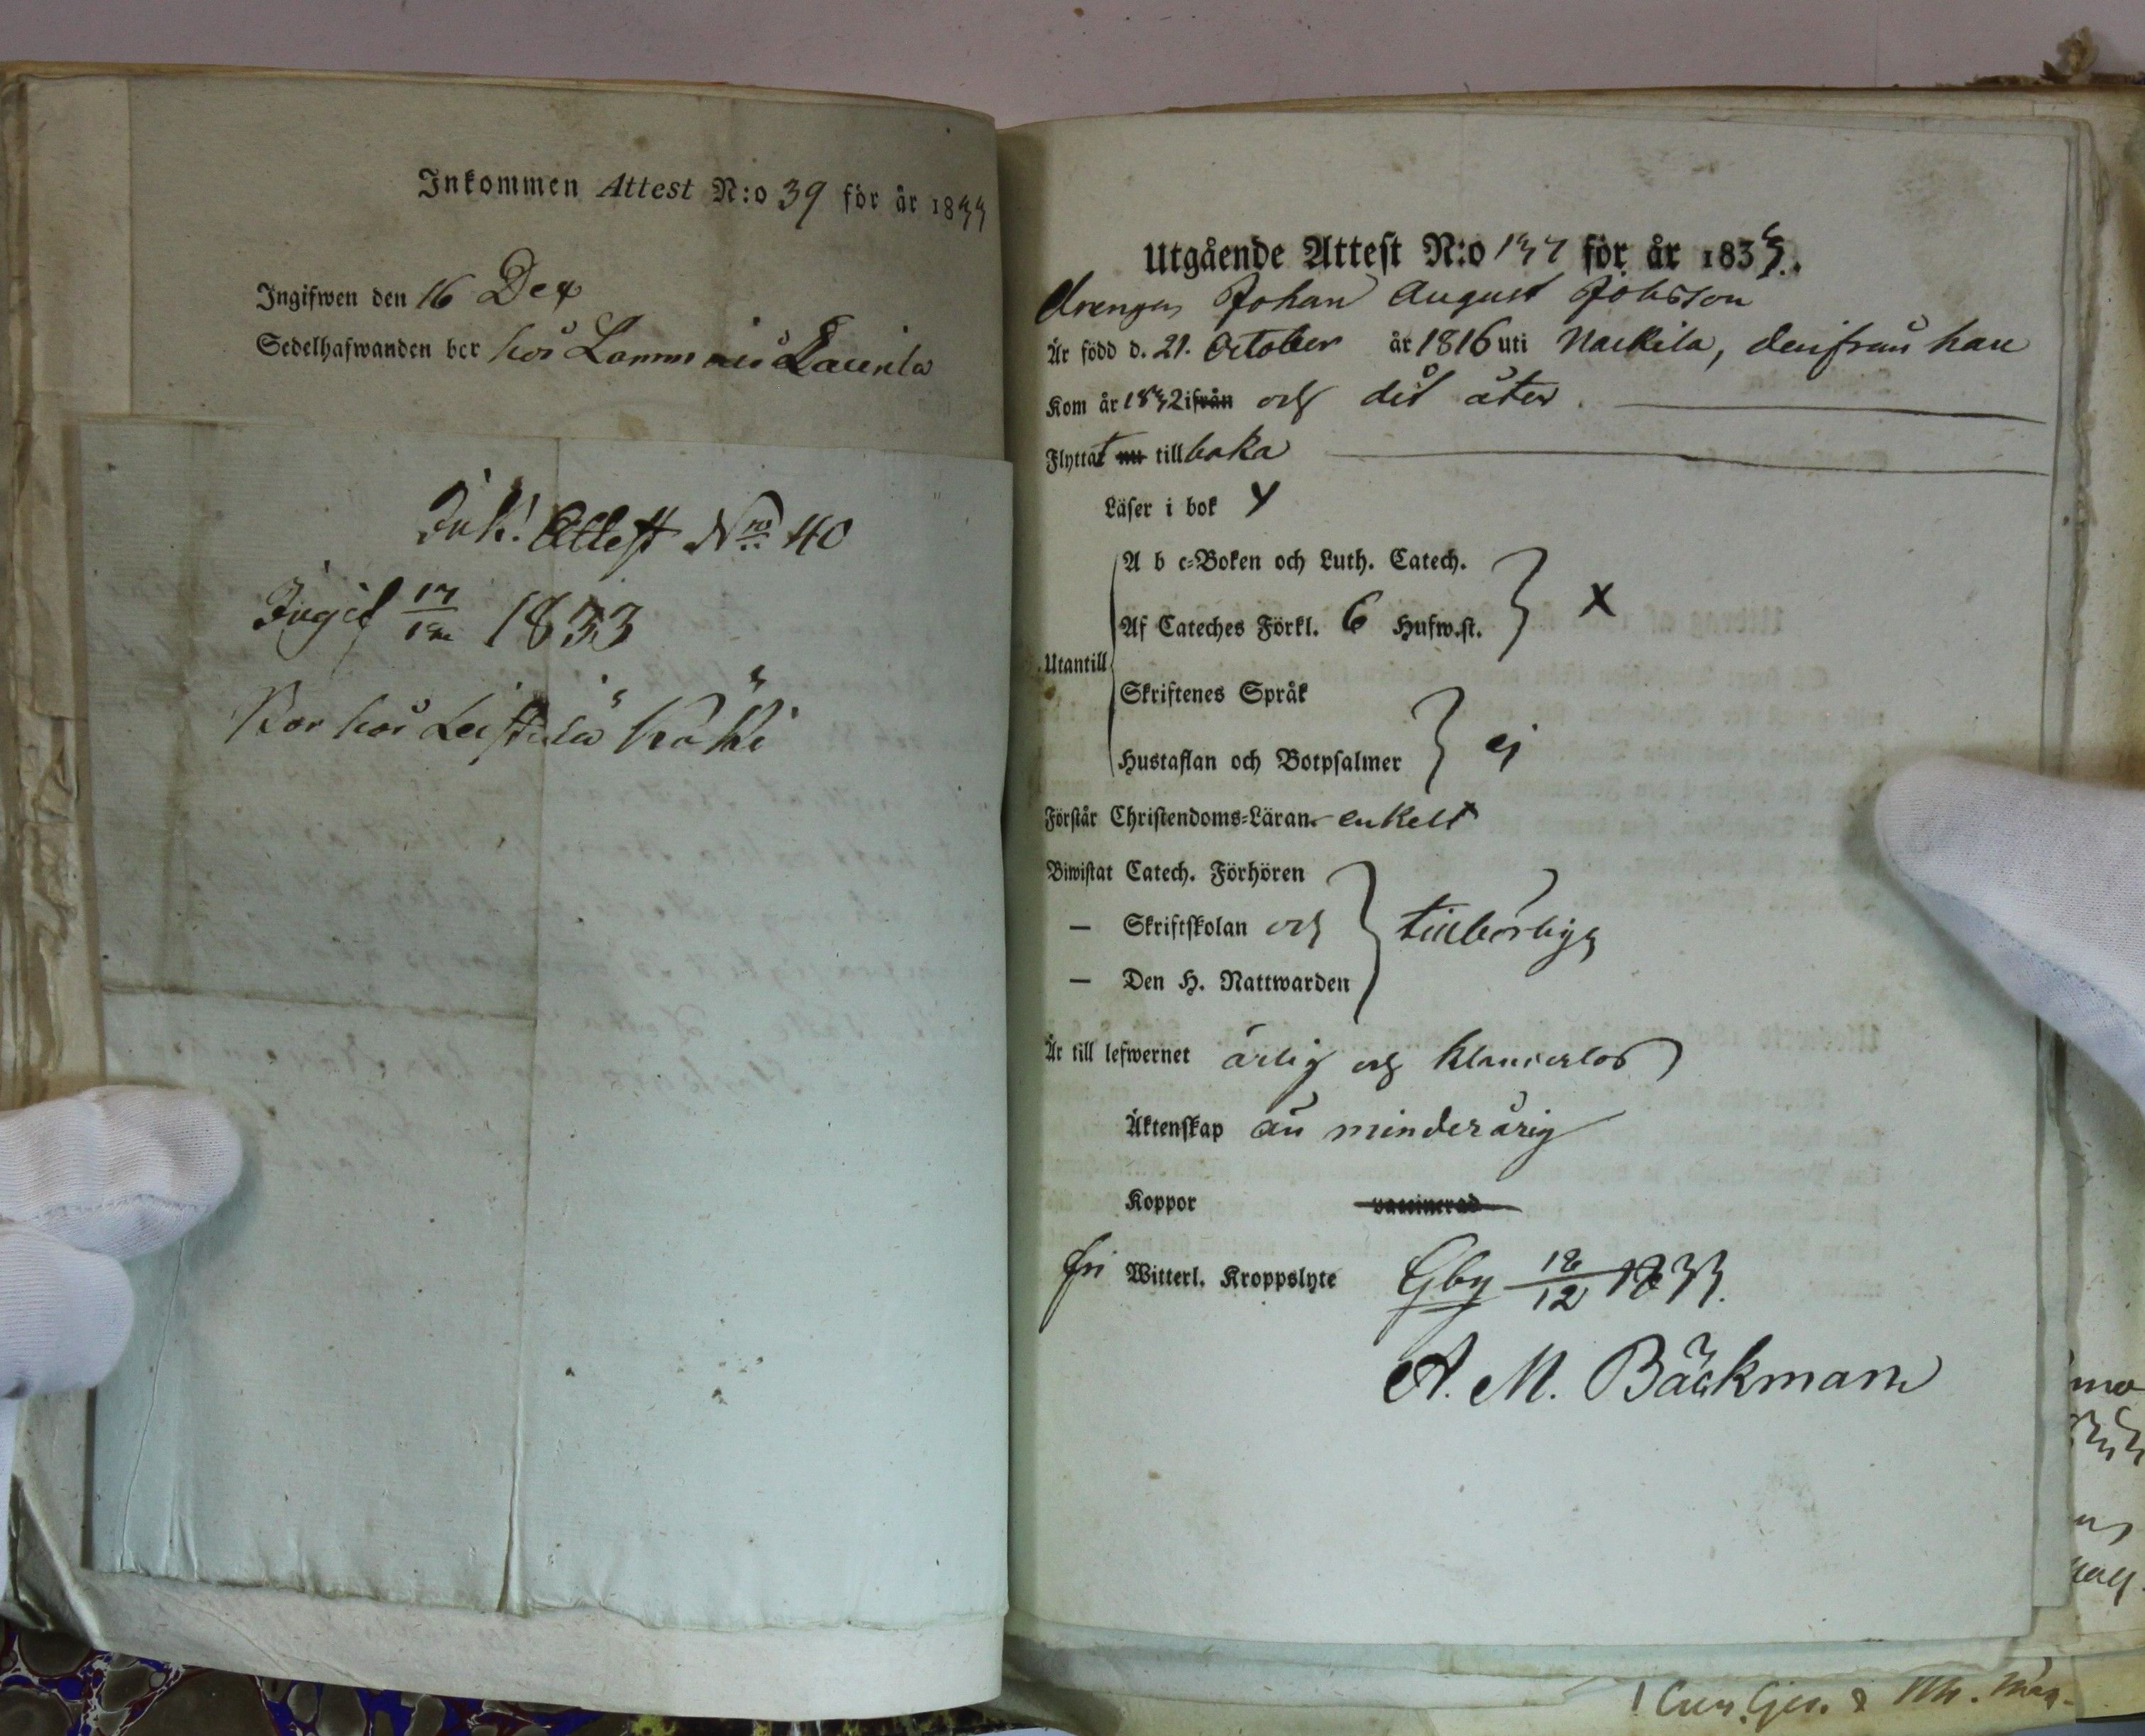 Inkommen Attest N:o 39 för år 1833
Ingifwen den 16 Dec
Sedelhafwanden bor hos Lammais Laurila
Ink! Attest Nro 40
Ingif 17/12 1833
Bor hos Leistilä
Utgående Attest N:o 137 för år 1833.
Drengen Johan August Johsson
Är född d. 21. October år 1816 uti Nackila, derifrån han
Kom år 1832 ifrån och dit åter.
Flyttat nu tillbaka
Läser i bok y
A b c-Boken och Luth. Catech.
Af Cateches Förkl. 6 Hufw.st. x
Utantill
Skriftenes Språk
Hustaflan och Botpsalmer ej
Förstår Christendoms-Läran enkelt
Biwistat Catech. Förhören
— Skriftskolan och tillbörligt
— Den H. Nattwarden
Är till lefwernet ärlig och klanderlös
Äktenskap än minderårig
Koppor vaccinerad
fri Witterl. Kroppslyte Gby 12 1833.
A. M. Bäckman